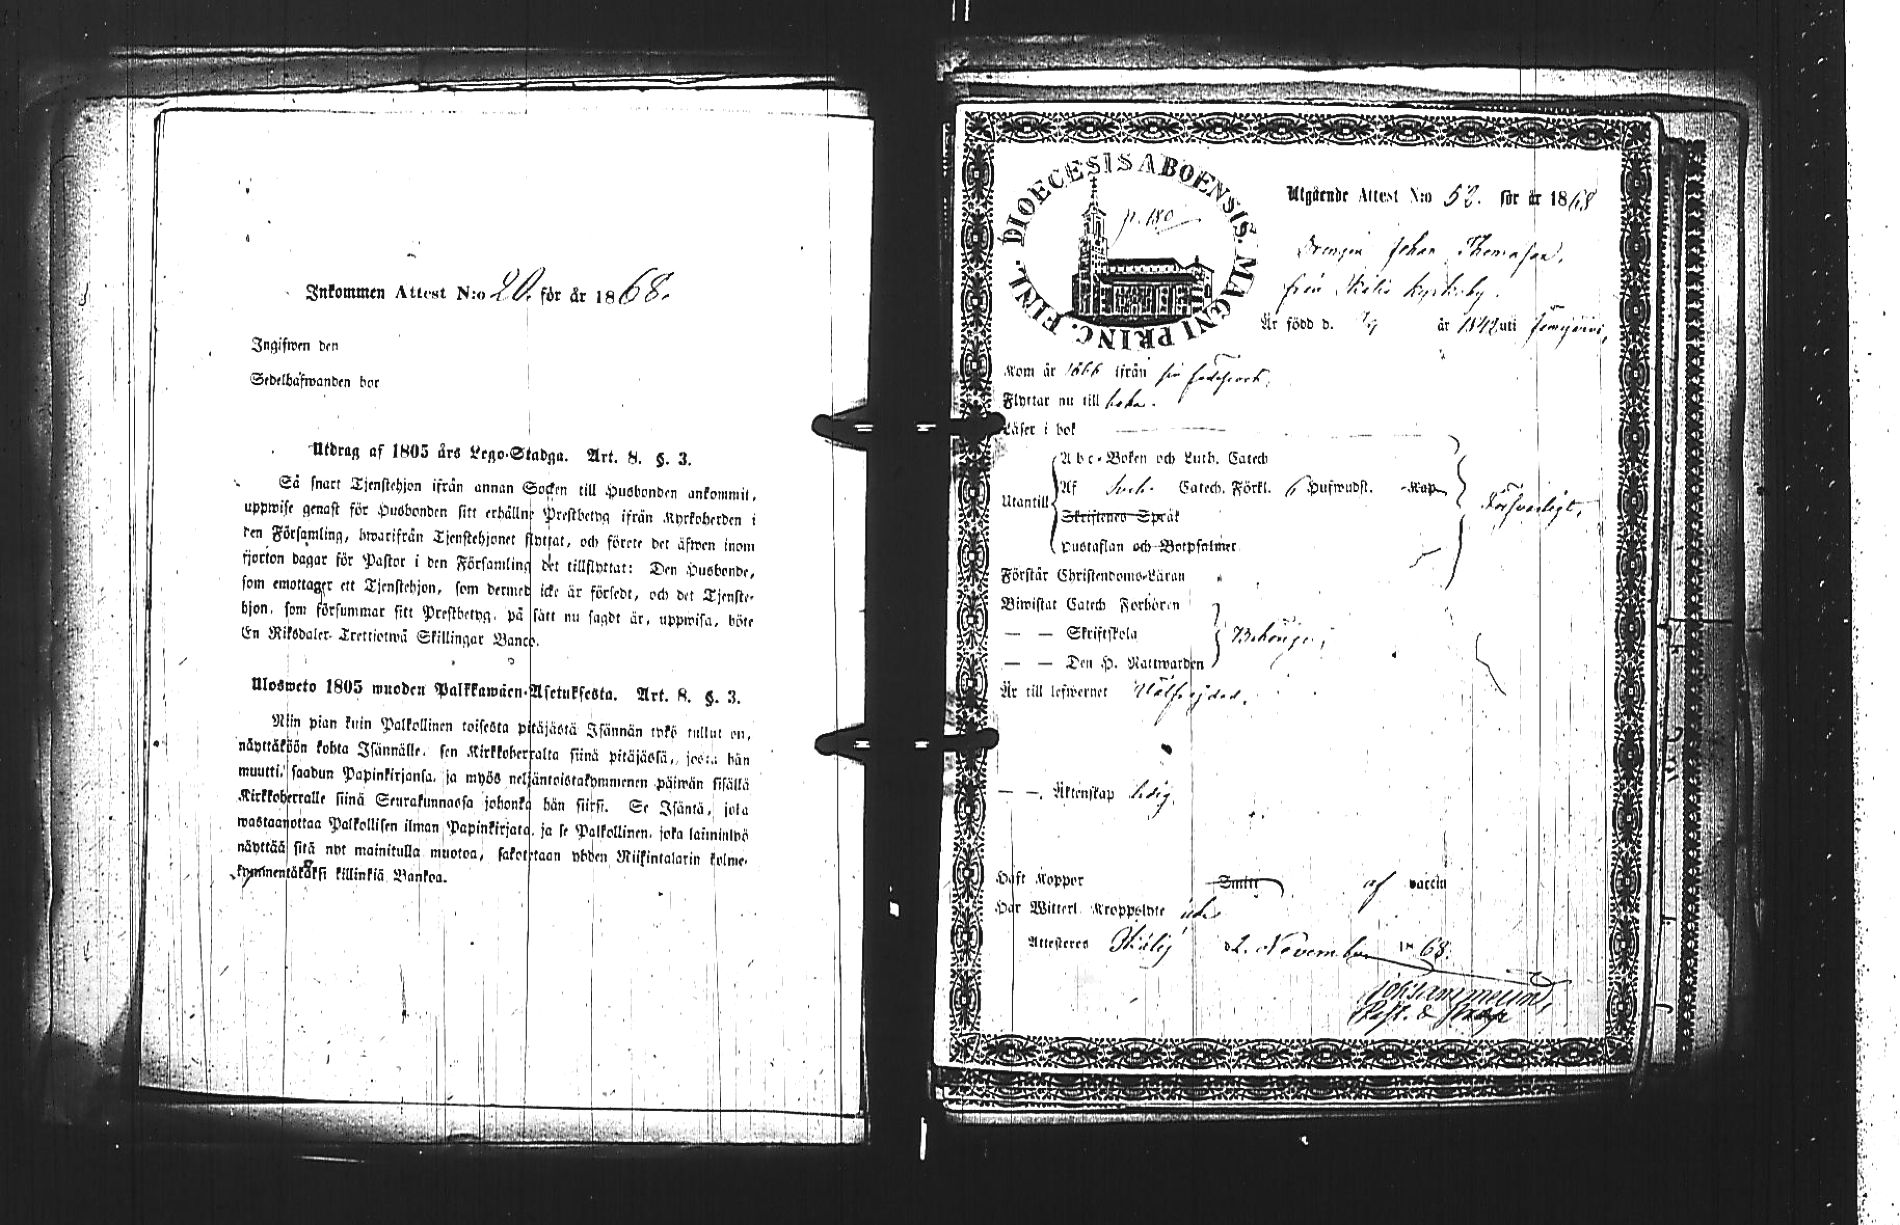 Inkommen Attest N:o 20. för år 1868.
Ingifwen den
Sedelhafwanden bor
Utdrag af 1805 års Lego-Stadga. Art. 8. §. 3.
Så snart Tjenstehjon ifrån annan Socken till Husbonden ankommit,
uppwise genast för Husbonden sitt erhållne Prestbetyg ifrån Kyrkoherden i
den Församling, hwarifrån Tjenstehjonet flyttat, och förete det äfwen inom
fjorton dagar för Pastor i den Församling det tillflyttat: Den Husbonde,
som emottager ett Tjenstehjon, som dermed icke är försedt, och det Tjenste-
hjon, som försummar sitt Prestbetyg, på sätt nu sagdt är, uppwisa, böte
En Riksdaler Trettiotwå Skillingar Banco.
Ulosweto 1805 wuoden Palkkawäen-Asetuksesta. Art. 8. §. 3.
Niin pian kuin Palkollinen toisesta pitäjästä Isännän tykö tullut on,
näyttäköön kohta Isännälle, sen Kirkkoherralta siinä pitäjässä, josta hän
muutti, saadun Papinkirjansa, ja myös neljäntoistakymmenen päiwän sisällä
Kirkkoherralle siinä Seurakunnassa johonka hän siirsi. Se Isäntä, joka
wastaanottaa Palkollisen ilman Papinkirjata, ja se Palkollinen, joka laiminlyö
näyttää sitä nyt mainitulla muotoa, sakotetaan yhden Riikintalarin kolme-
kymmentäkaksi killinkiä Bankoa.
DIOECESIS ABOENSIS. MAGNI PRINC. FINL.
p. 180
Utgående Attest N:o 52. för år 1868
Drengen Johan Thomasson,
från Ikalis Kyrkoby.
Är född d. år 1842 uti
Kom år 1866 ifrån sin
Flyttar nu till
Läser i bok
Abc-Boken och Luth. Catech
Utantill Af Catech. Förkl. 6 Hufwudst. Kap
Skriftenes Språk
Hustaflan och Botpsalmer
Försvarligt,
Förstår Christendoms-Läran
Biwistat Catech Förhören
— — Skriftskola
— — Den H. Nattwarden
Är till lefwernet Välfrejdad.
— —, Äktenskap ledig,
Haft Koppor Smitt af vaccin
Har Witterl. Kroppslyte
Attesteras Ikalis d 2. November 1868.